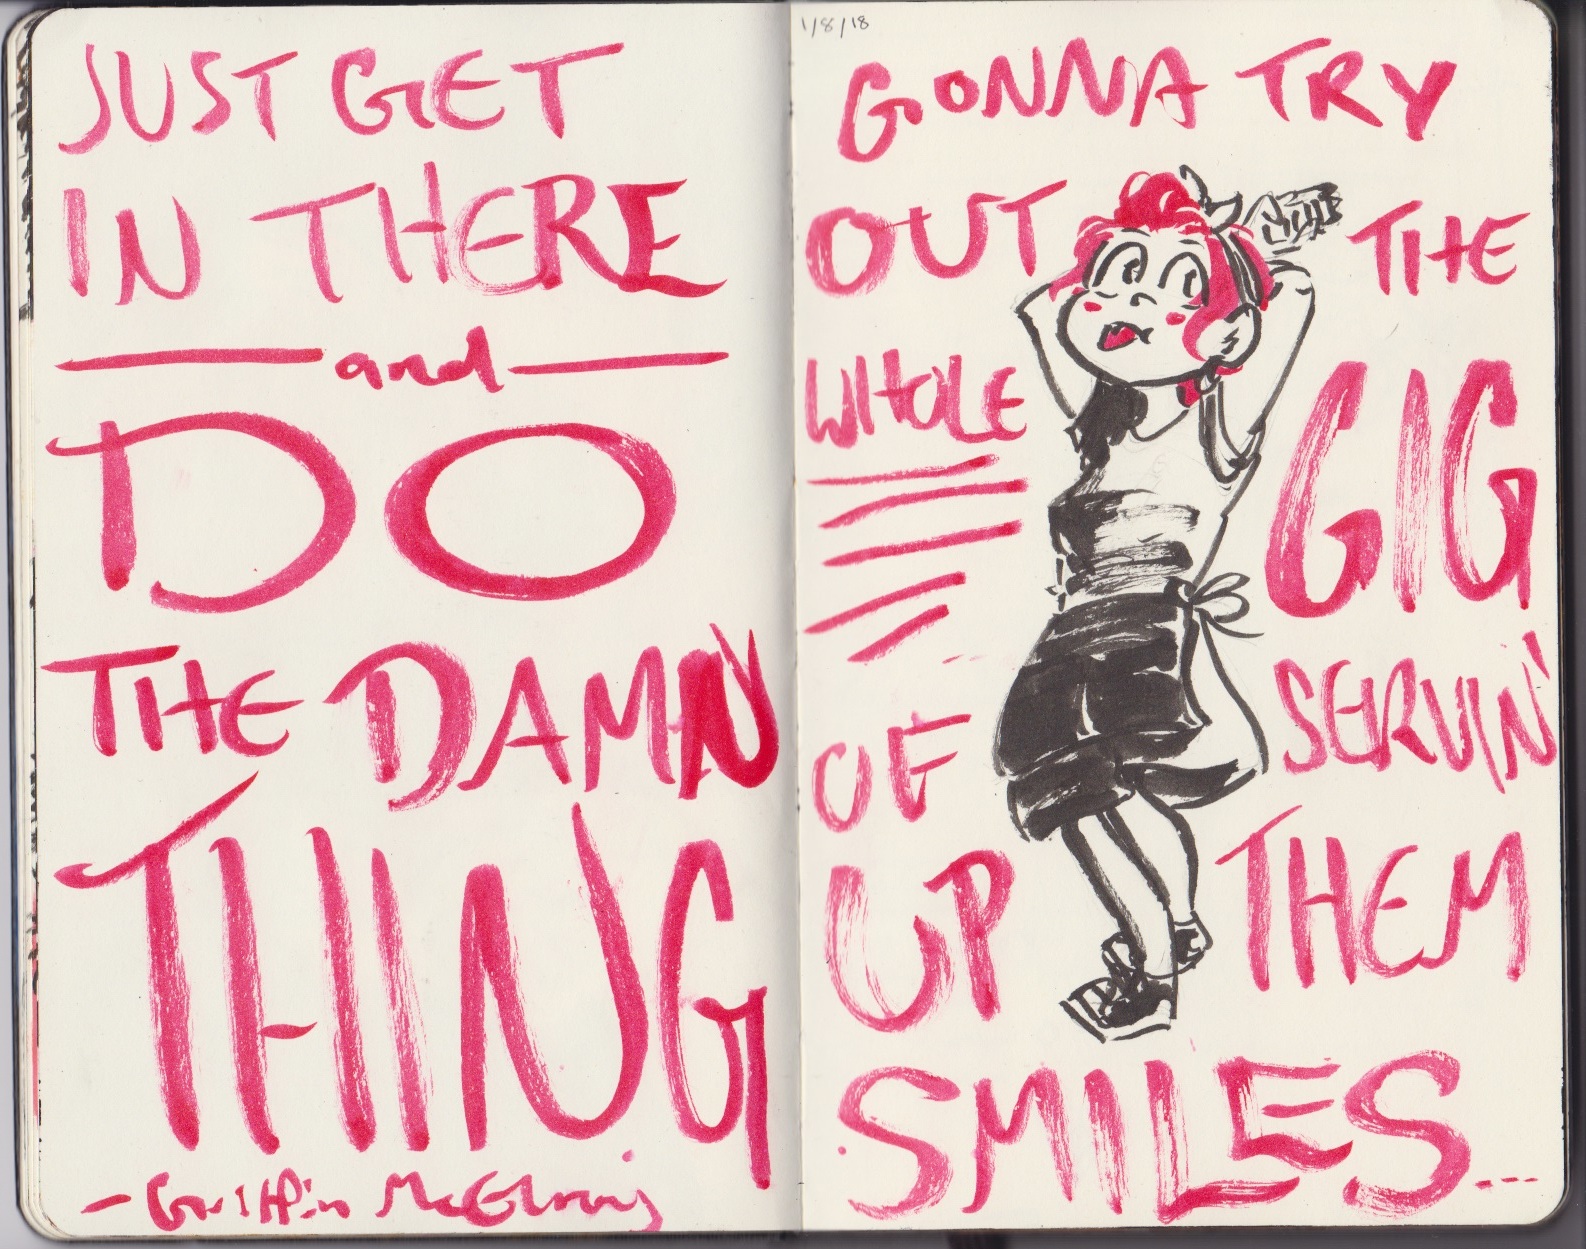 JUST GET
IN THERE
and
DO
THE DAMN
THING
- Griffin McElroy
1/8/18
GONNA TRY
OUT THE
WHOLE GIG
OF SERVIN'
UP THEM
SMILES...